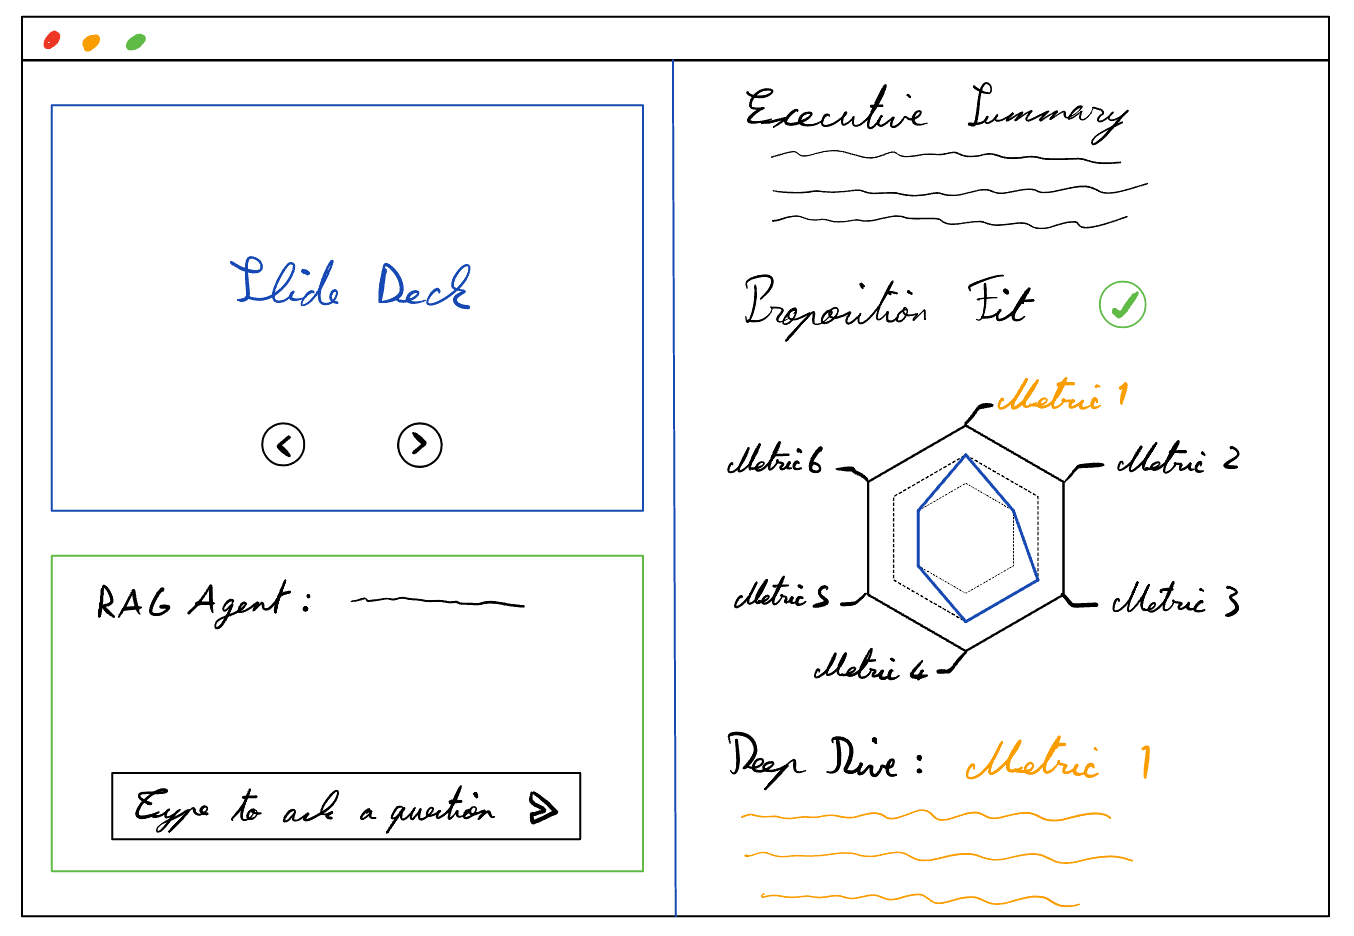 Slide Deck
RAG Agent :
Type to ask a question
Executive Summary
Proposition Fit
Metric 1
Metric 6
Metric 2
Metric 5
Metric 3
Metric 4
Deep Dive : Metric 1